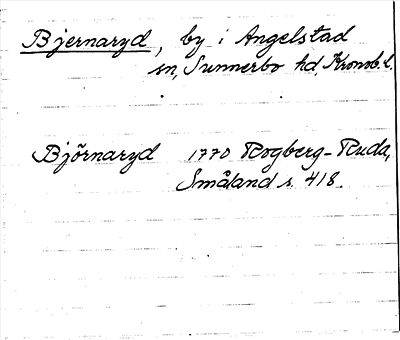 Bjernaryd, by i Angelstad
sn, Sunnerbo hd, Kronob. l.
Björnaryd 1770 Rogberg-Ruda,
Småland s. 418.